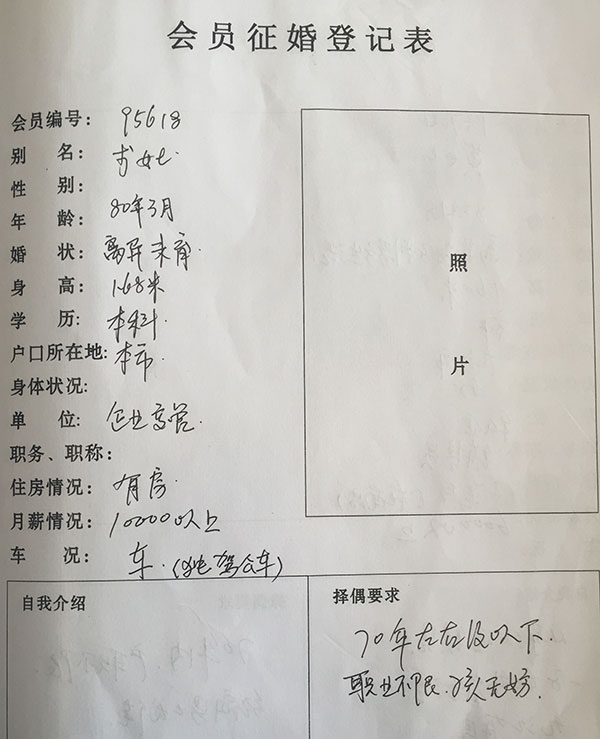 会员征婚登记表
会员编号: 95618
别 名: 女士
性 别:
年 龄: 80年3月
婚 状: 离异未育.
身 高: 1.68米
学 历: 本科.
户口所在地: 本市.
身体状况:
单 位: 企业高管.
职务、职称:
住房情况: 有房.
月薪情况: 10000以上
车 况: 车.(驾公车)
照
片
自我介绍
择偶要求
70年左右及以下.
职业不限.孩无妨.